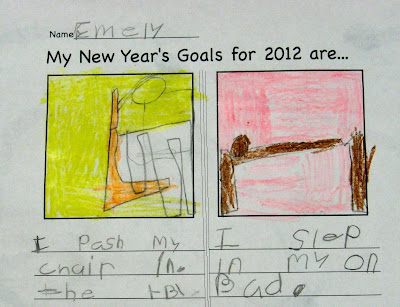 Name Emely
My New Year's Goals for 2012 are...
I Pash My
chair In.
the tBl.
I Slep
in my on
Bad.